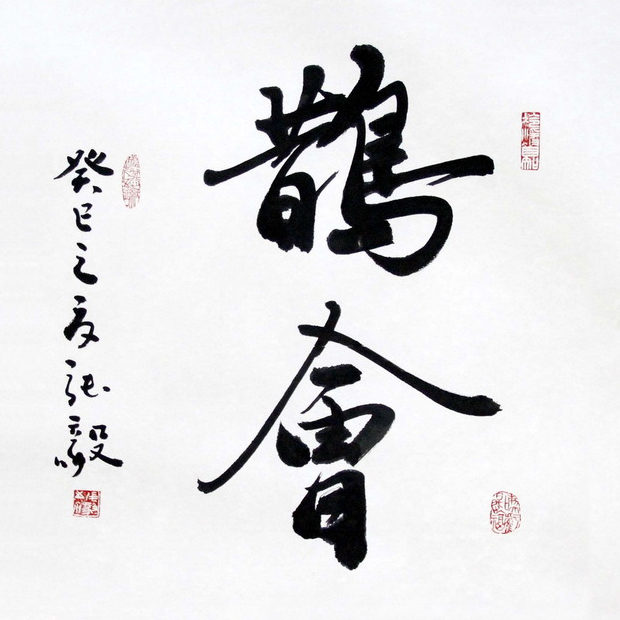 鵲會
癸巳之夏张毅